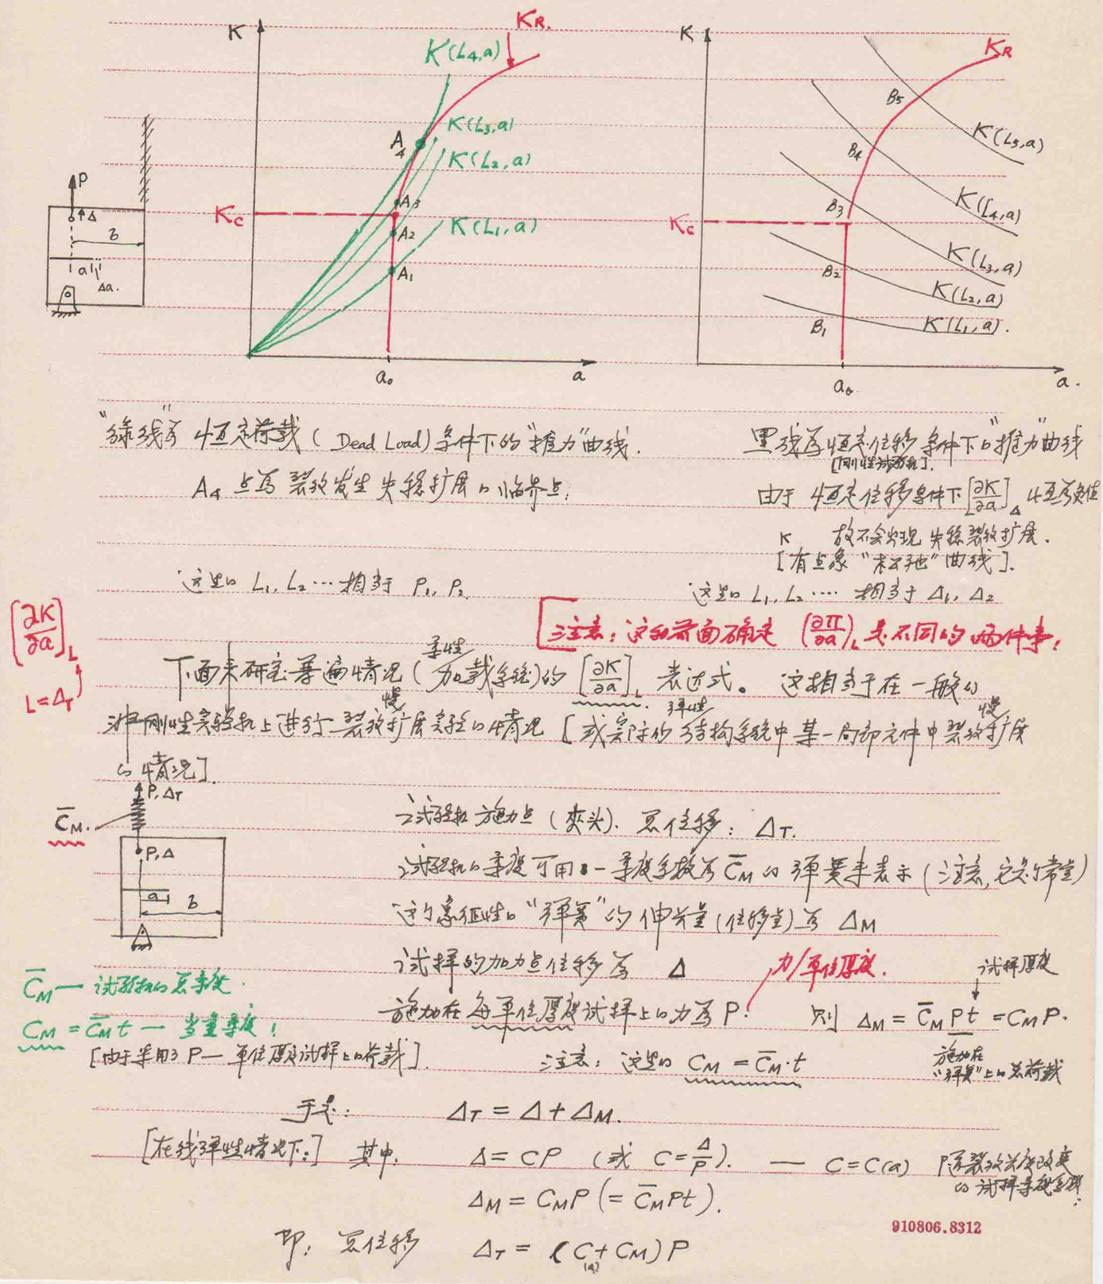 K
K_R.
K(L₄,a)
K(L₃,a)
K(L₂,a)
K(L₁,a)
A₄
A₃
A₂
A₁
K_c
a₀
a
P
Δ
b
a
Δa.
K
K_R
B₅
B₄
B₃
B₂
B₁
K(L₅,a)
K(L₄,a)
K(L₃,a)
K(L₂,a)
K(L₁,a).
K_c
a₀
a.
"绿线"为恒定荷载(Dead Load)条件下的"推力"曲线.
A₄点为裂纹发生失稳扩展的临界点;
这里的 L₁, L₂ ⋯ 相当于 P₁, P₂
黑线为恒定位移条件下的"推力"曲线
由于恒定位移条件下[∂K/∂a]_Δ 恒为负值
K 故不会出现失稳裂纹扩展.
[有点象"松弛"曲线].
这里的 L₁, L₂ ⋯⋯ 相当于 Δ₁, Δ₂
[注意: 这和前面确定 (∂Π/∂a)_L 是不同的两件事,
[∂K/∂a]_L
L=Δ_T
下面来研究普遍情况(柔性加载系统)的[∂K/∂a]_L 表达式。这相当于在一般的
非刚性实验机上进行裂纹慢扩展实验的情况[或实际的弹性结构系统中某一局部元件中裂纹慢扩展
的情况].
P, Δ_T
C̄_M.
P, Δ
a
b
试验机施力点(夹头).总位移: Δ_T.
试验机的柔度可用一柔度系数为 C̄_M 的弹簧来表示(注意,它为常量)
这个象征性的"弹簧"的伸长量(位移量)为 Δ_M
试样的加力点位移为 Δ
力/单位厚度.
试样厚度
施加在每单位厚度试样上的力为 P. 则 Δ_M = C̄_M P t = C_M P.
施加在"弹簧"上的总荷载
C̄_M — 试验机的总柔度.
C_M = C̄_M t — 当量柔度!
[由于采用了 P — 单位厚度试样上的荷载].
注意: 这里的 C_M = C̄_M·t
于是: Δ_T = Δ + Δ_M.
[在线弹性情况下:] 其中, Δ = CP (或 C = Δ/P). — C = C(a) 随裂纹长度改变的试样柔度系数.
Δ_M = C_M P (= C̄_M P t).
即: 总位移 Δ_T = (C(a) + C_M) P
910806.8312